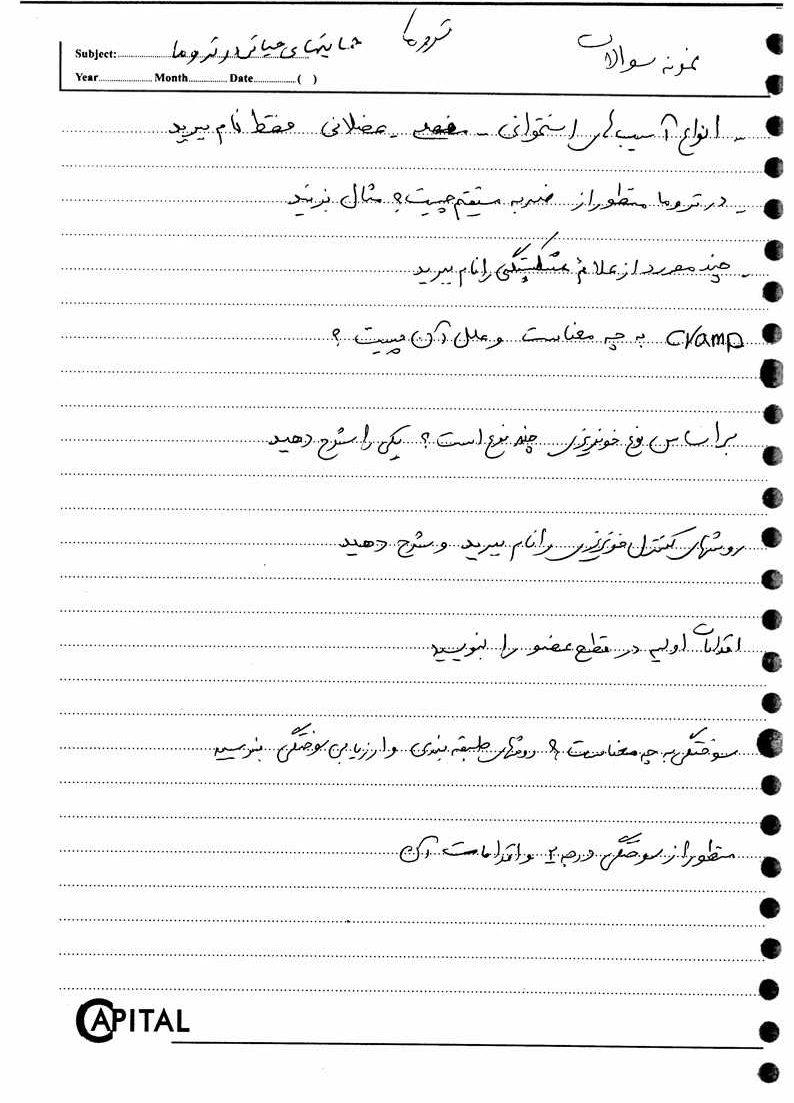 نمونه سوالات تروما
Subject: حمایتهای حیاتی در تروما
Year Month Date ( )
- انواع آسیب های استخوانی - مفصلی - عضلانی فقط نام ببرید
- در تروما منظور از ضربه مستقیم چیست؟ مثال بزنید
- چند مورد از علائم شکستگی را نام ببرید
Cramp به چه معناست و علل آن چیست ؟
بر اساس نوع خونریزی چند نوع است ؟ یکی را شرح دهید
روشهای کنترل خونریزی را نام ببرید و شرح دهید
اقدامات اولیه در قطع عضو را بنویسید
سوختگی به چه معناست ؟ روشهای طبقه بندی و ارزیابی سوختگی بنویسید
منظور از سوختگی درجه ۲ و اقدامات آن
CAPITAL